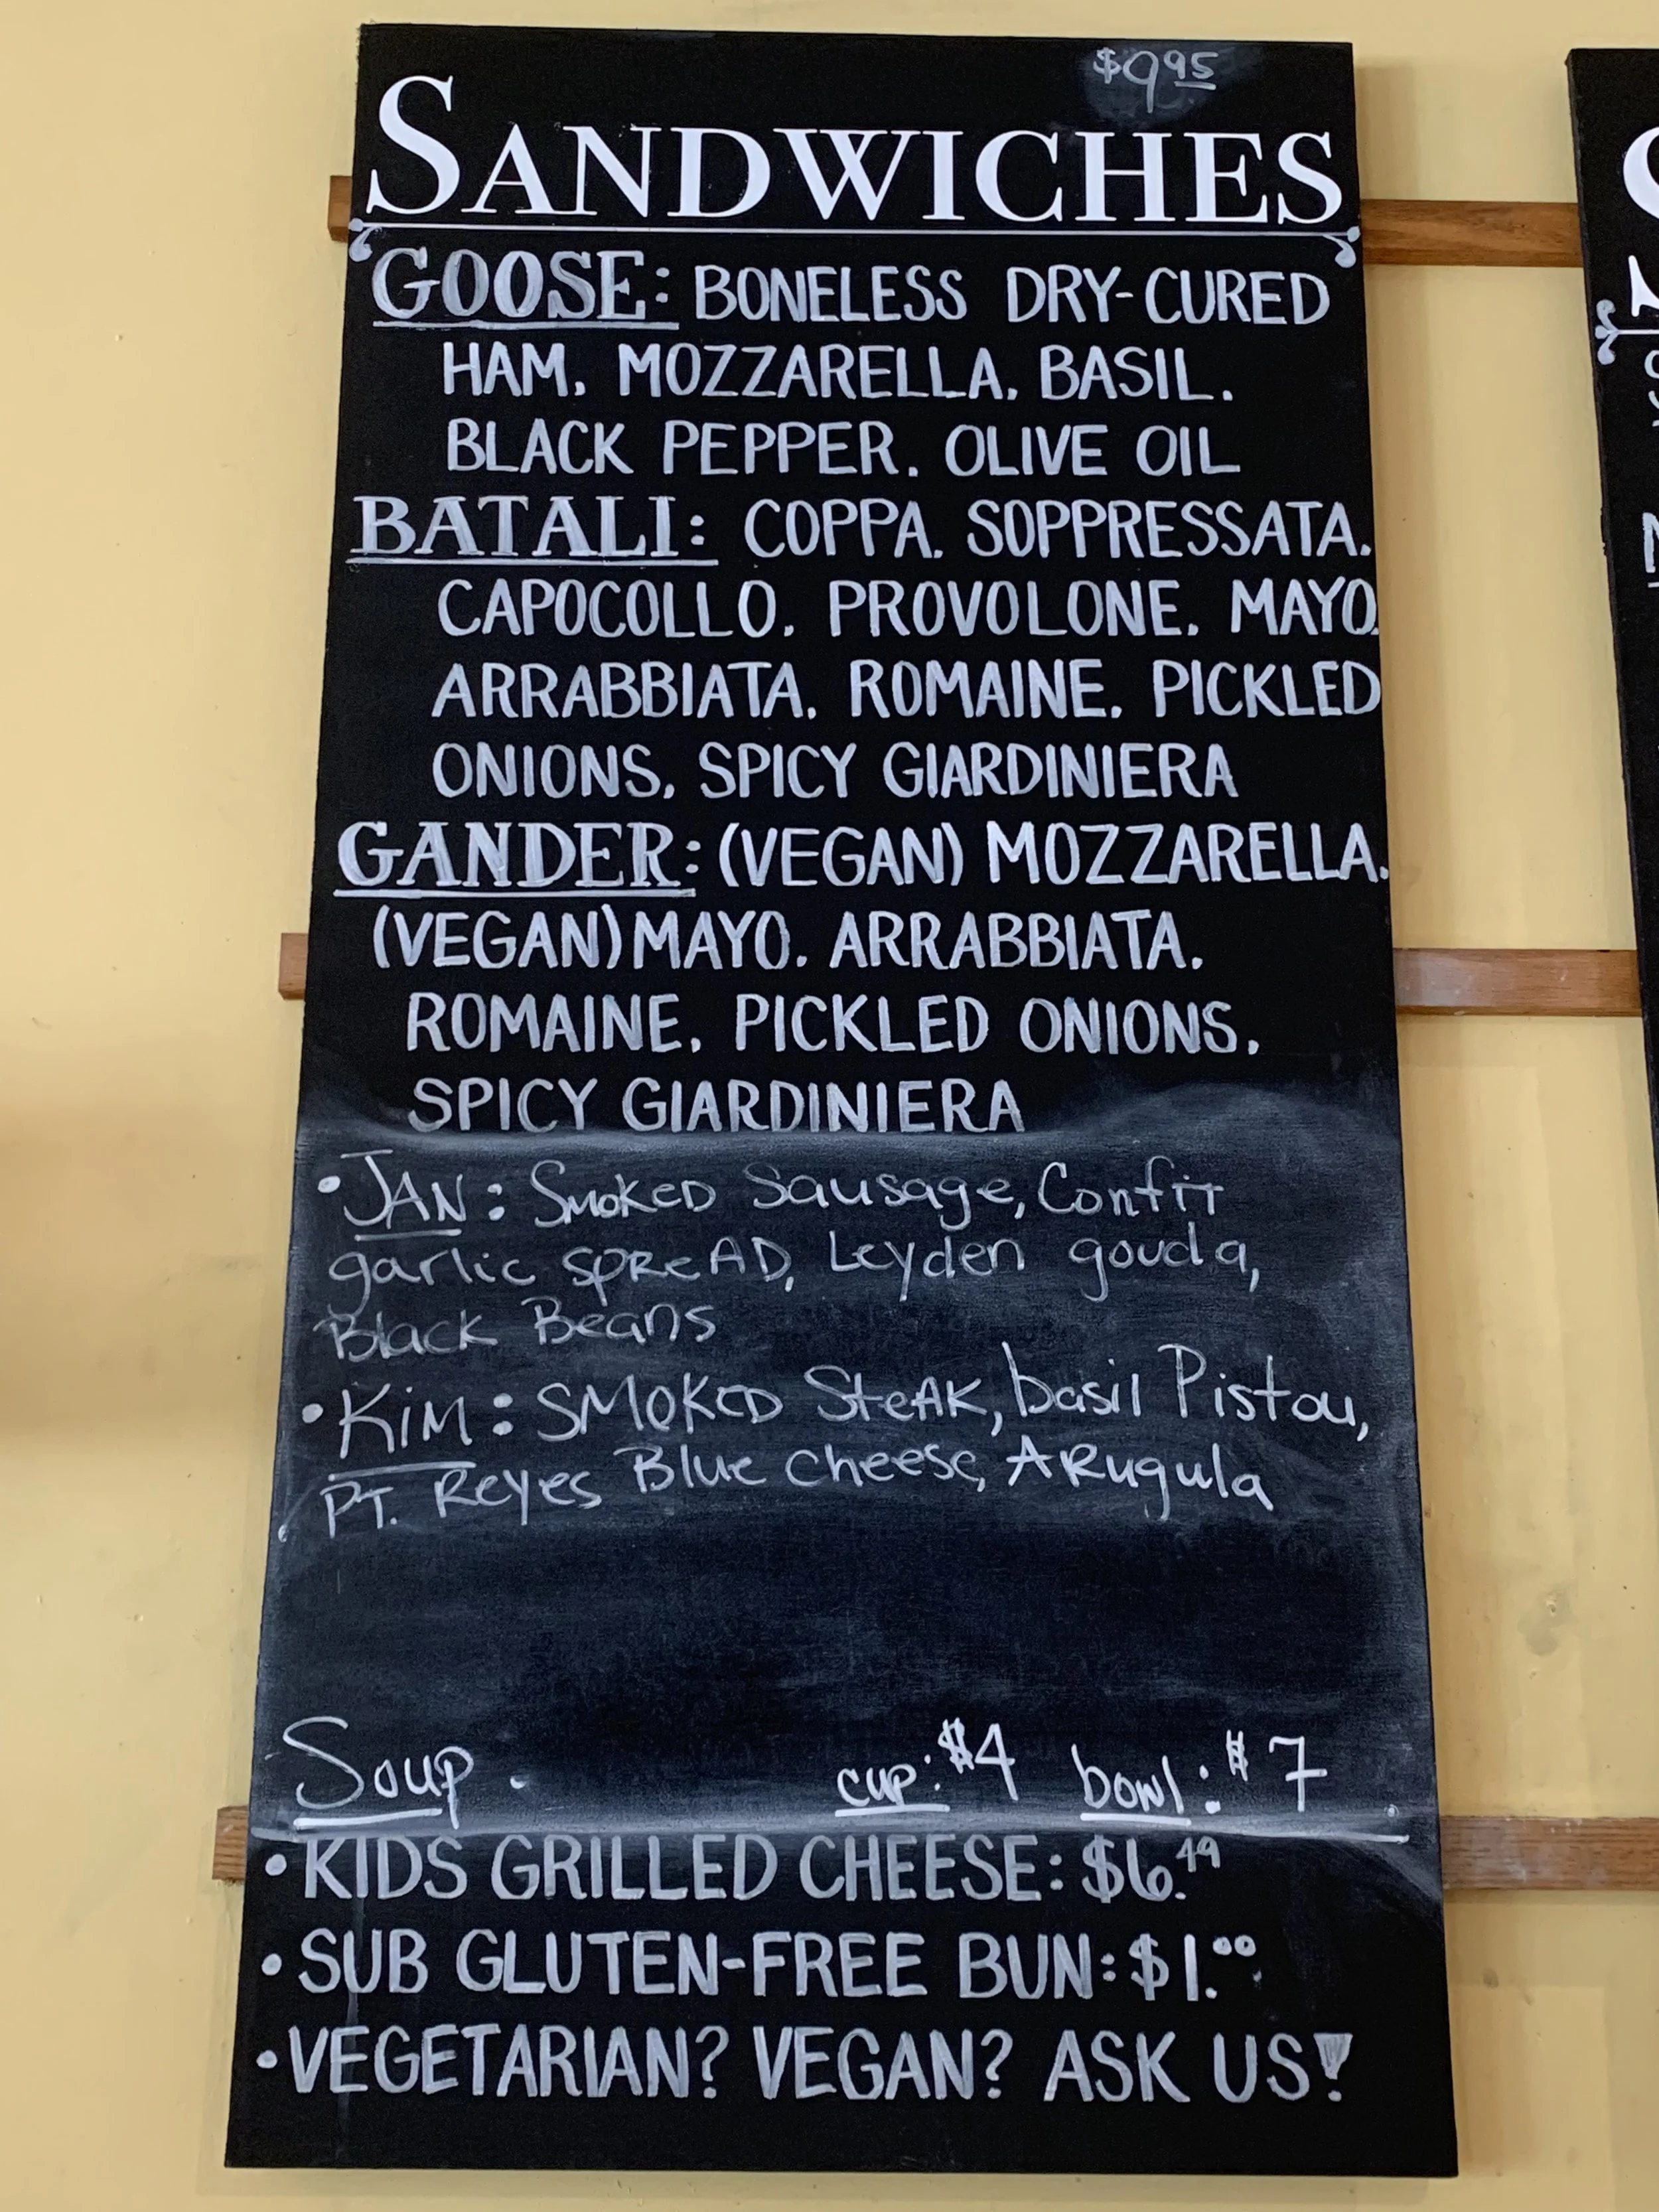 $9.95
SANDWICHES
GOOSE: BONELESS DRY-CURED
HAM. MOZZARELLA. BASIL.
BLACK PEPPER. OLIVE OIL
BATALI: COPPA. SOPPRESSATA.
CAPOCOLLO. PROVOLONE. MAYO.
ARRABBIATA. ROMAINE. PICKLED
ONIONS. SPICY GIARDINIERA
GANDER: (VEGAN) MOZZARELLA.
(VEGAN) MAYO. ARRABBIATA.
ROMAINE. PICKLED ONIONS.
SPICY GIARDINIERA
• JAN: Smoked Sausage, Confit
garlic spreAD, Leyden gouda,
Black Beans
• KiM: SMOKED SteAK, basil Pistou,
PT. Reyes Blue cheese, ARugula
Soup. cup: $4 bowl: $7
• KIDS GRILLED CHEESE: $6.49
• SUB GLUTEN-FREE BUN: $1.00
• VEGETARIAN? VEGAN? ASK US!